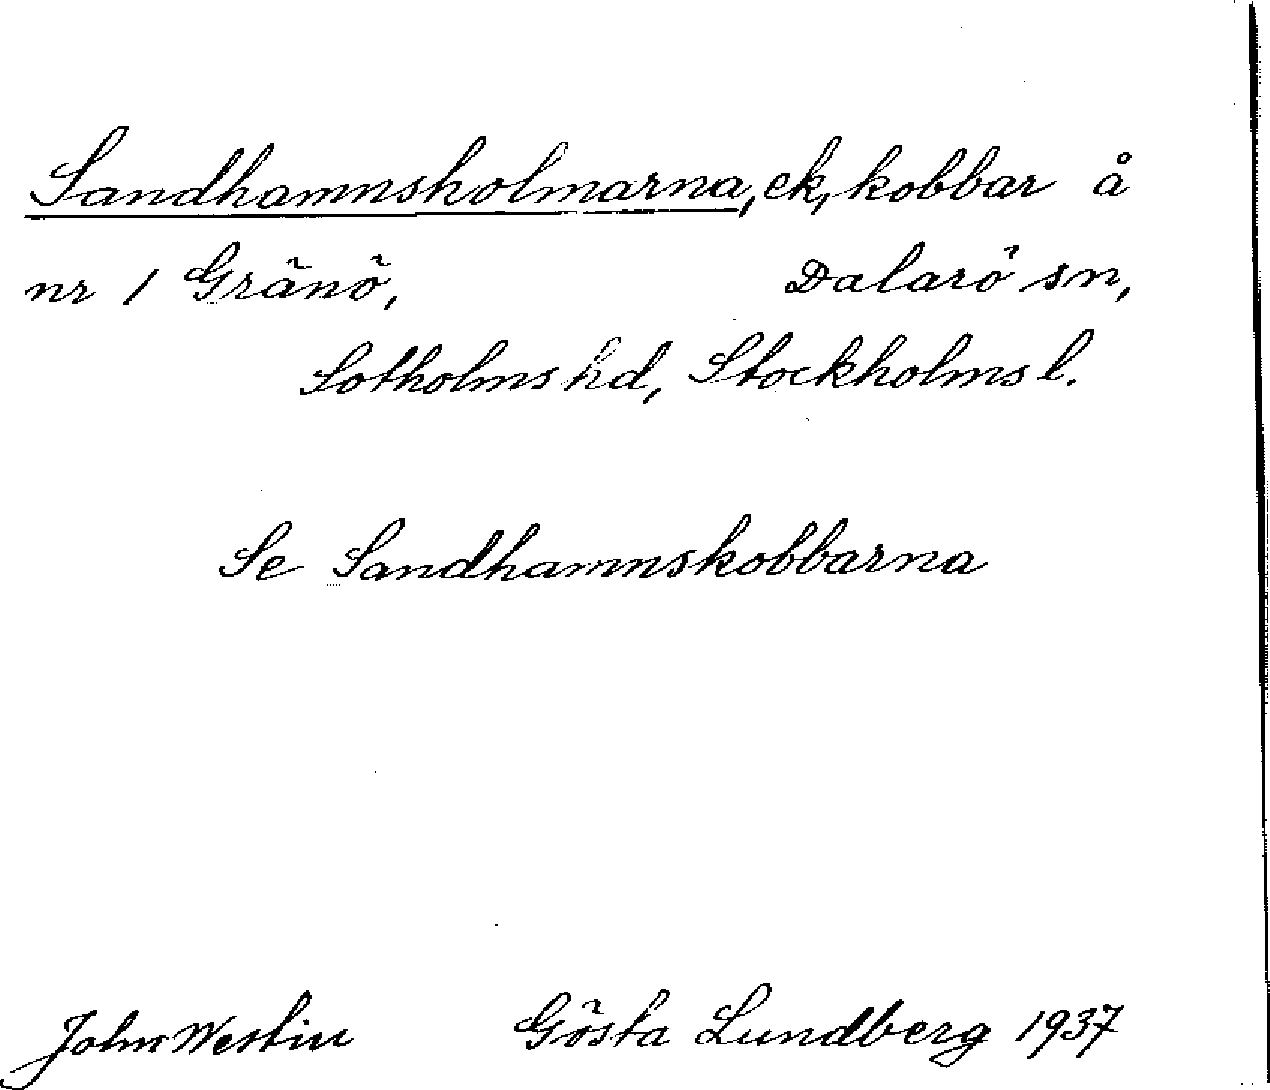 Sandhamnsholmarna, ek, kobbar å
nr 1 Gränö, Dalarö sn,
Sotholms hd, Stockholms l.
Se Sandhamnskobbarna
John Westin Gösta Lundberg 1937